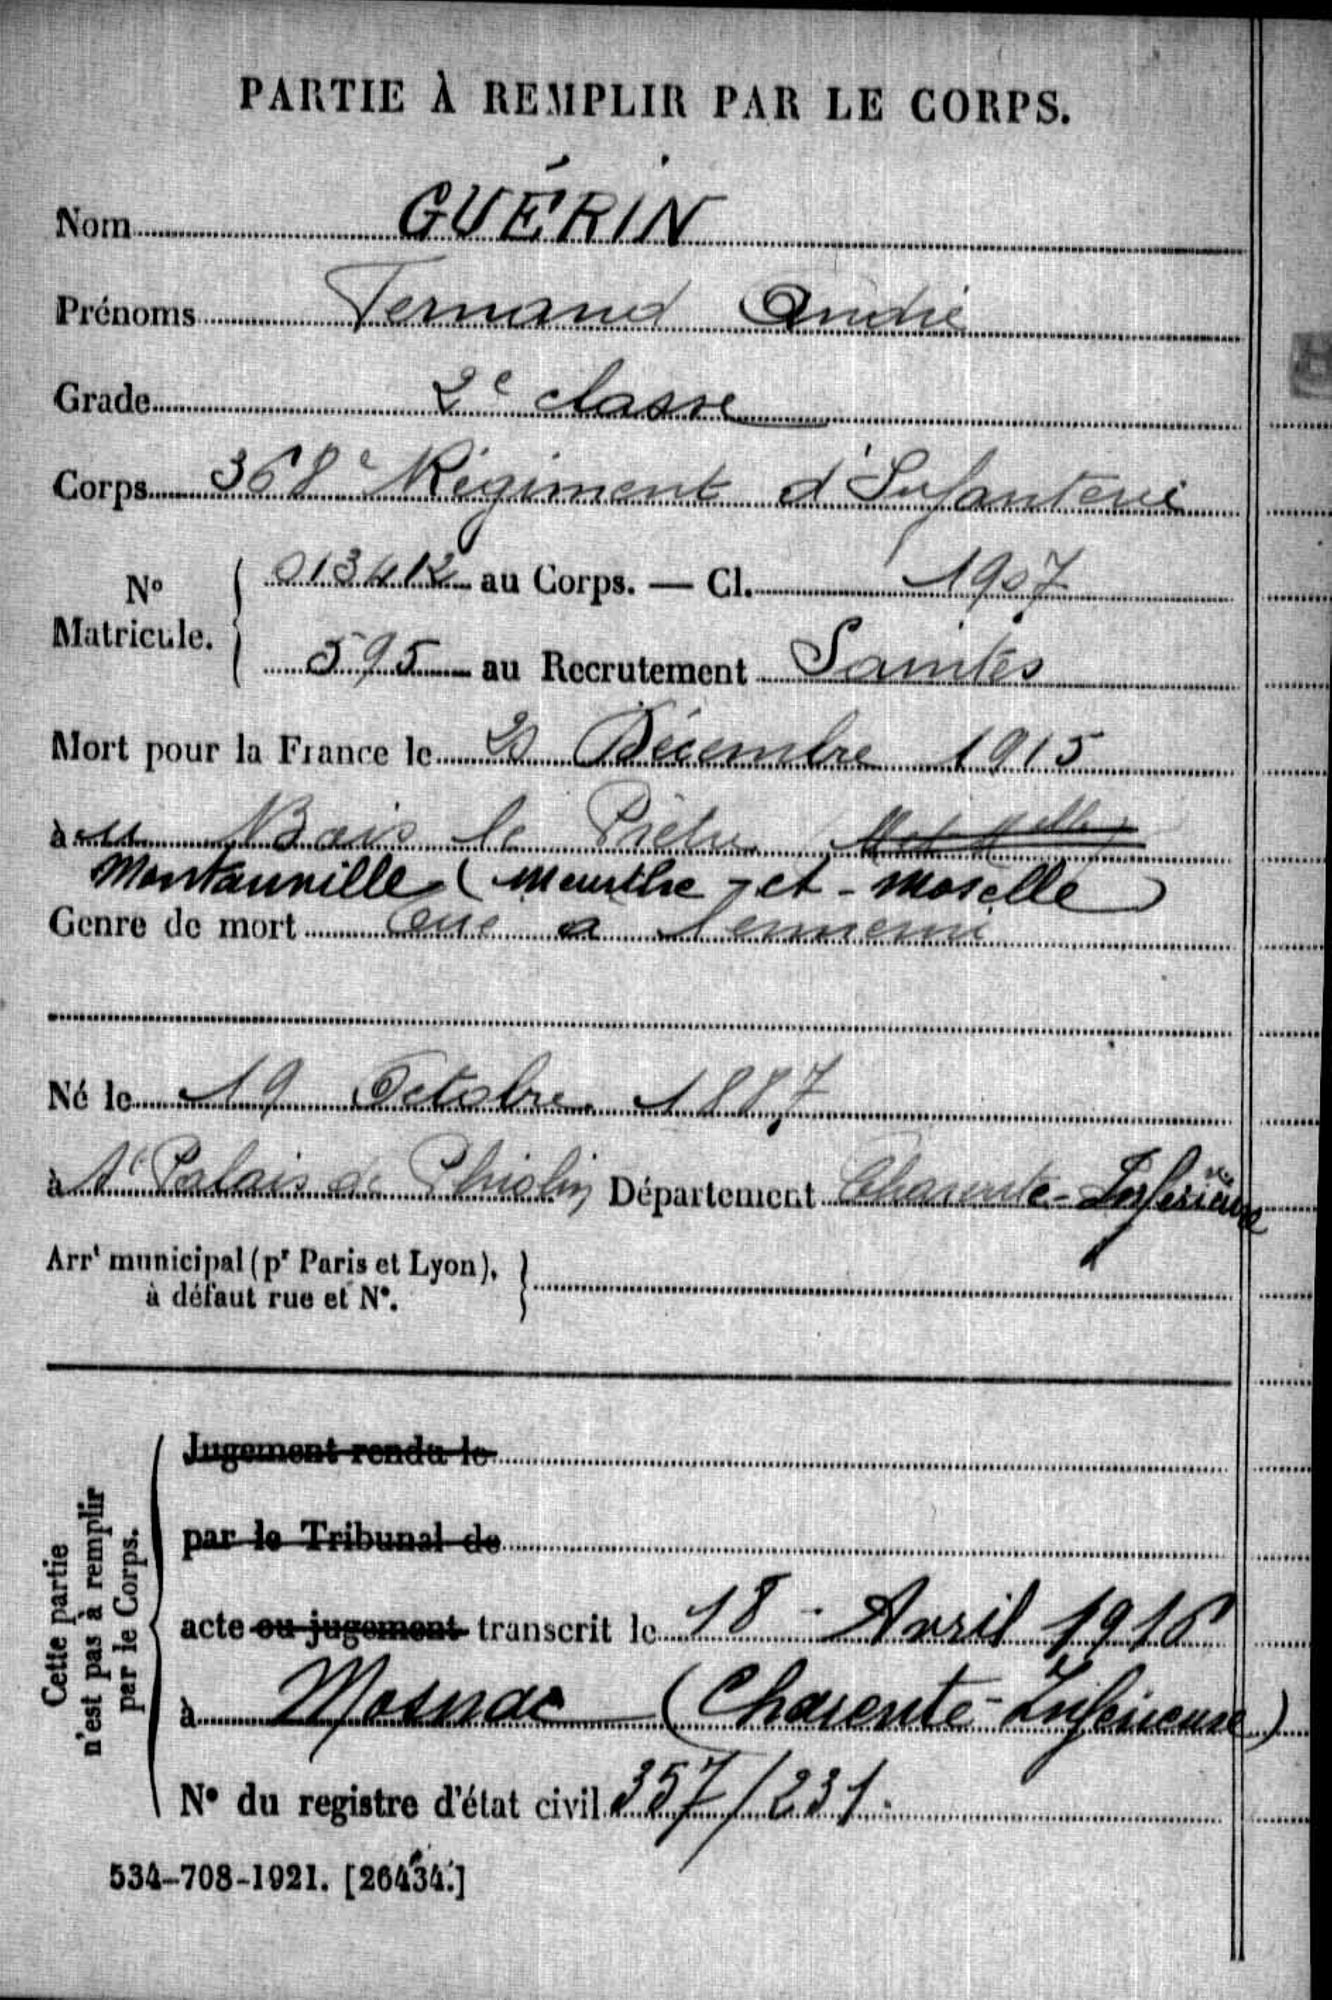 PARTIE À REMPLIR PAR LE CORPS.
Nom GUÉRIN
Prénoms Fernand André
Grade 2e classe
Corps 368e Régiment d'Infanterie
No Matricule. 01341R au Corps. — Cl. 1907
595 au Recrutement Saintes
Mort pour la France le Décembre 1915
à au Bois le Prêtre
Montauville (Meurthe-et-Moselle)
Genre de mort Tué à l'ennemi
Né le 19 Octobre 1887
à St Palais de Phiolin Département Charente-Inférieure
Arrt municipal (pr Paris et Lyon),
à défaut rue et No.
Cette partie
n'est pas à remplir
par le Corps.
Jugement rendu le
par le Tribunal de
acte ou jugement transcrit le 18 - Avril 1916
à Mosnac (Charente-Inférieure)
No du registre d'état civil 357/231.
534-708-1921. [26434.]